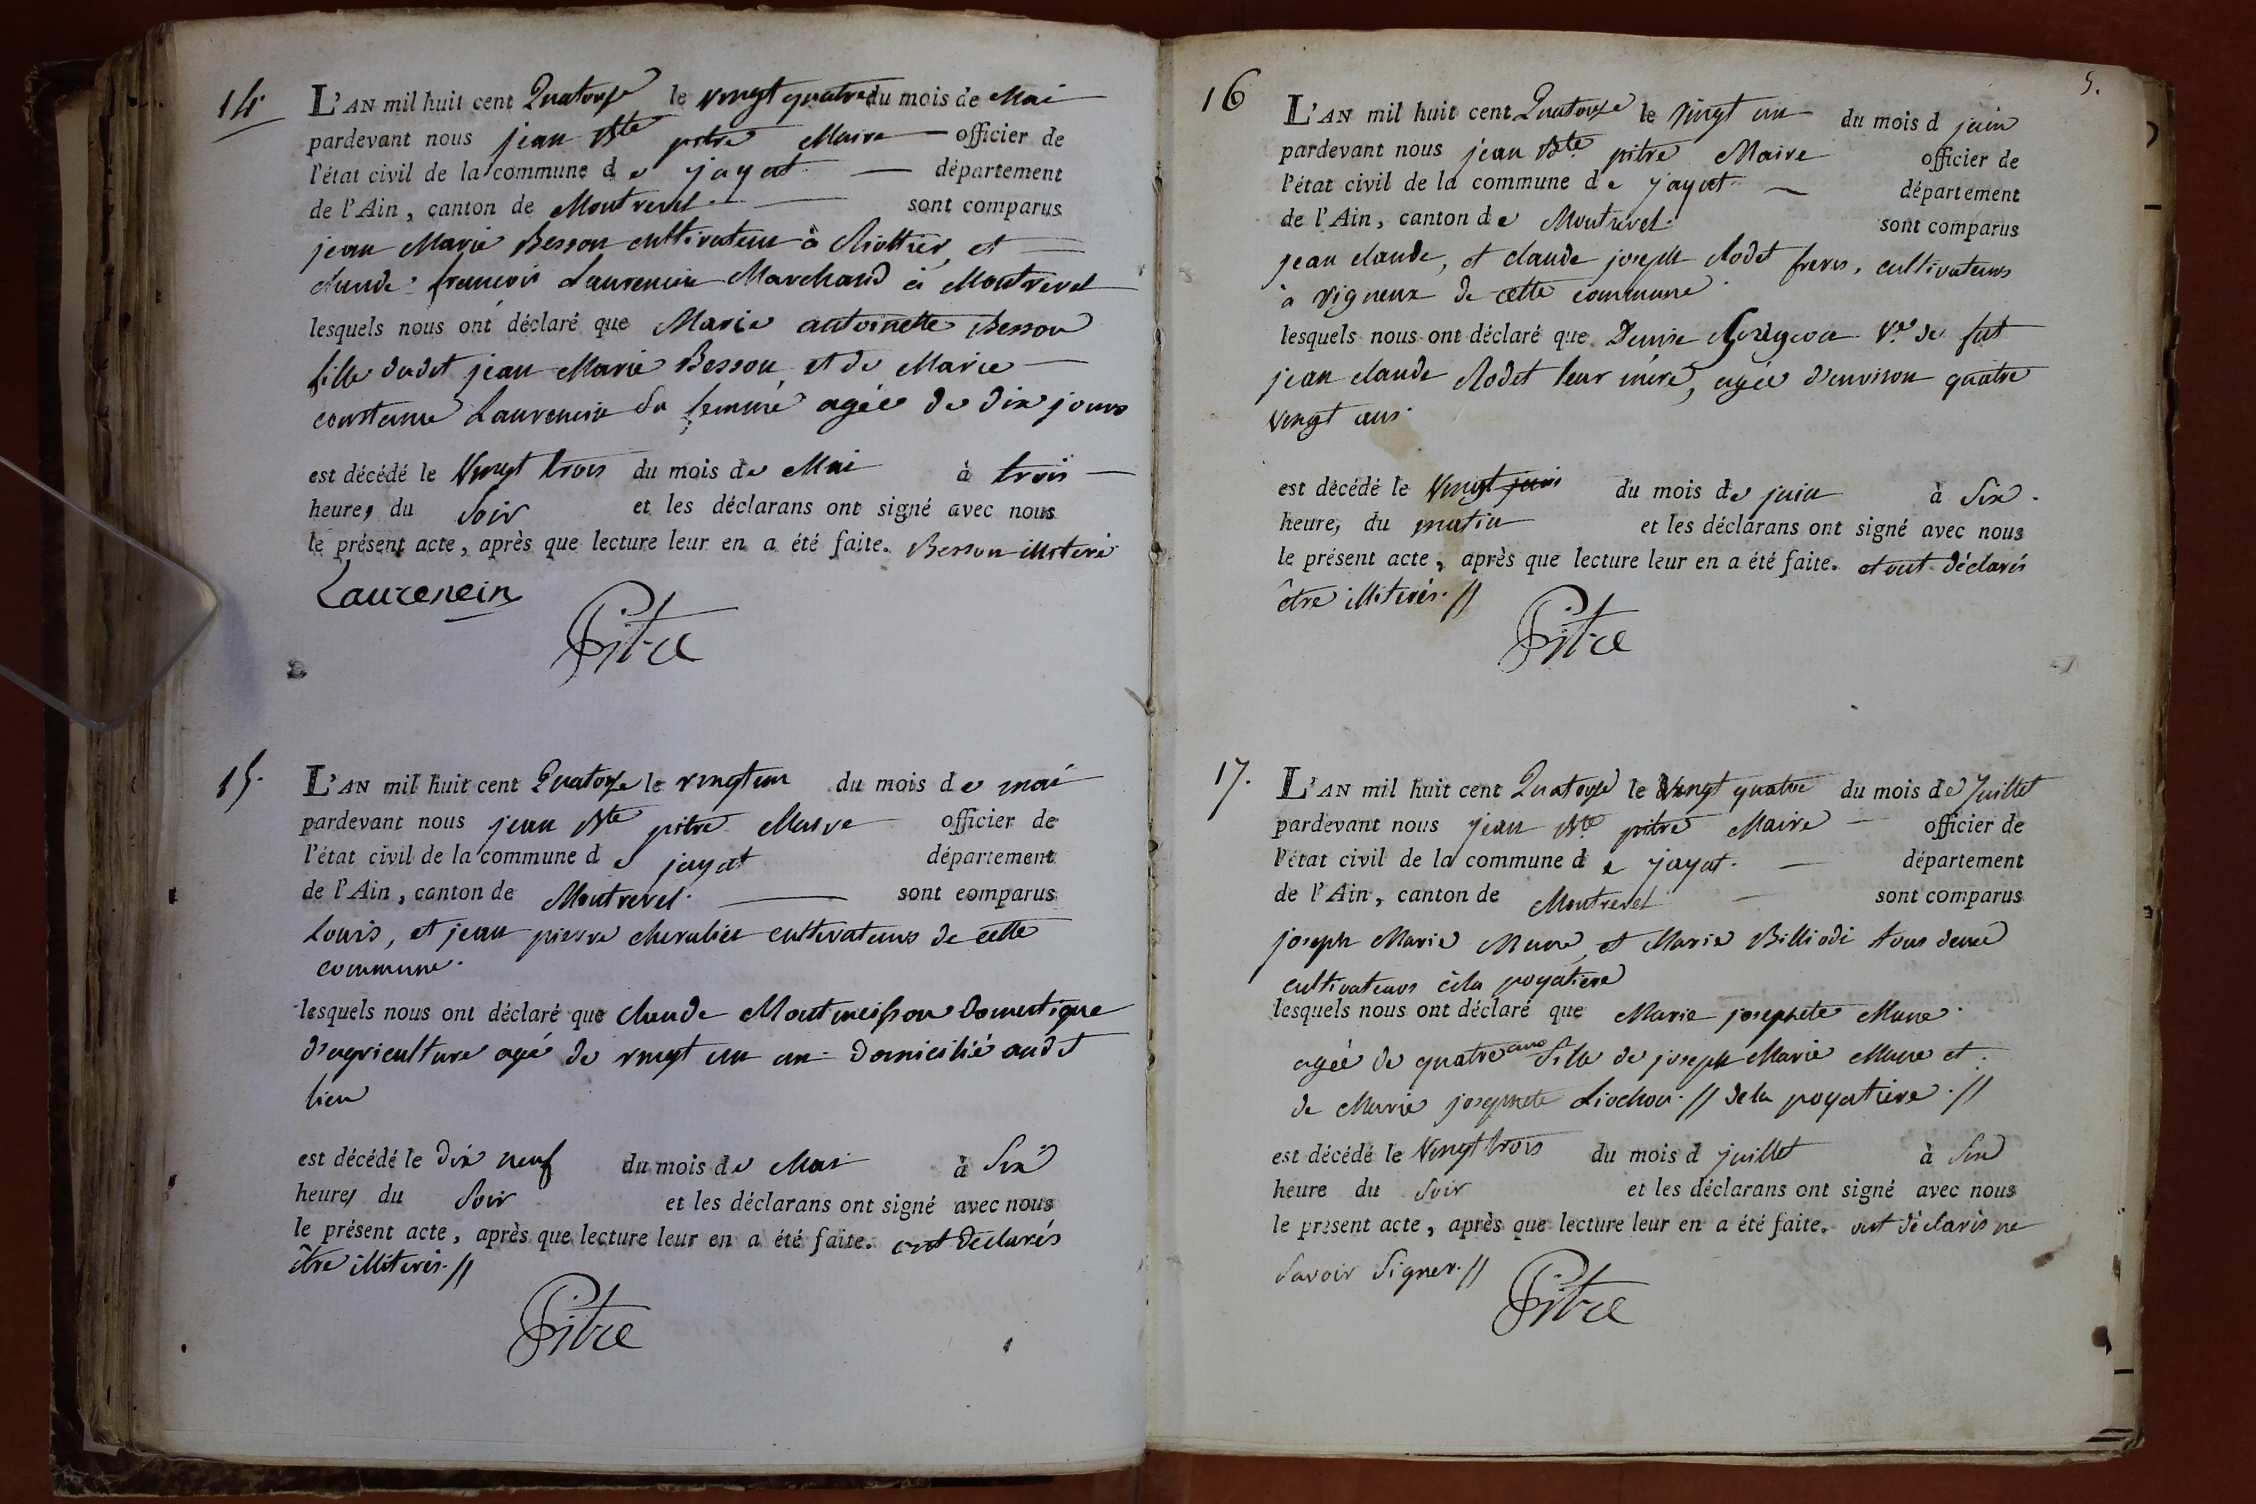 14
L'AN mil huit cent Quatorze le vingt quatre du mois de Mai
pardevant nous jean Bte pitre Maire officier de
l'état civil de la commune de jayat département
de l'Ain, canton de Montrevel. sont comparus
jean Marie Besson cultivateur à et
claude françois Laurencin Marchand à Montrevel
lesquels nous ont déclaré que Marie antoinette Besson
fille dudt jean Marie Besson et de Marie
constance Laurencin sa femme agée de dix jours
est décédé le Vingt trois du mois de Mai à trois
heures du Soir et les déclarans ont signé avec nous
le présent acte, après que lecture leur en a été faite. Besson illiteré
Laurencin
Pitre
15.
L'AN mil huit cent Quatorze le vingt un du mois de mai
pardevant nous jean Bte pitre Maire officier de
l'état civil de la commune de jayat département
de l'Ain, canton de Montrevel. sont comparus
Louis, et jean pierre chevalier cultivateurs de cette
commune.
lesquels nous ont déclaré que claude Montmeisson Domestique
d'agriculture agé de vingt un an domicilié audt
lieu
est décédé le dix neuf du mois de Mai à Six
heures du Soir et les déclarans ont signé avec nous
le présent acte, après que lecture leur en a été faite. ont déclarés
être illiterés.//
Pitre
5.
16
L'AN mil huit cent Quatorze le vingt un du mois d juin
pardevant nous jean Bte pitre Maire officier de
l'état civil de la commune de jayat. département
de l'Ain, canton de Montrevel. sont comparus
jean claude, et claude joseph Rodet freres, cultivateurs
à Vigneux de cette commune.
lesquels nous ont déclaré que Denise Ve de fut
jean claude Rodet leur mère, agée d'environ quatre
vingt ans.
est décédé le Vingt juin du mois de juin à Six.
heures du matin et les déclarans ont signé avec nous
le présent acte, après que lecture leur en a été faite. et ont déclarés
être illiterés.//
Pitre
17.
L'AN mil huit cent Quatorze le Vingt quatre du mois de Juillet
pardevant nous jean Bte pitre Maire officier de
l'état civil de la commune de jayat. département
de l'Ain, canton de Montrevel sont comparus
joseph Marie et Marie Billiodi tous deux
cultivateurs à la poyatiere
lesquels nous ont déclaré que Marie josephete
agée de quatre ans fille de joseph Marie et
de Marie josephete Liochon.// de la poyatiere.//
est décédé le Vingt trois du mois d juillet à Six
heure du Soir et les déclarans ont signé avec nous
le présent acte, après que lecture leur en a été faite. ont déclarés ne
Savoir Signer.//
Pitre